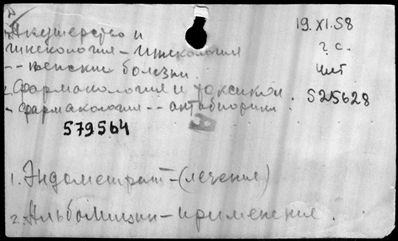 Акушерство и
гинекология - гинекология
-- женские болезни.
Фармакология и токсикол.
- фармакология -- антибиотики
19.XI.58
г. с.
чит
S25628
579564
1. Эндометрит - (лечение)
2. Альбомицин - применение.